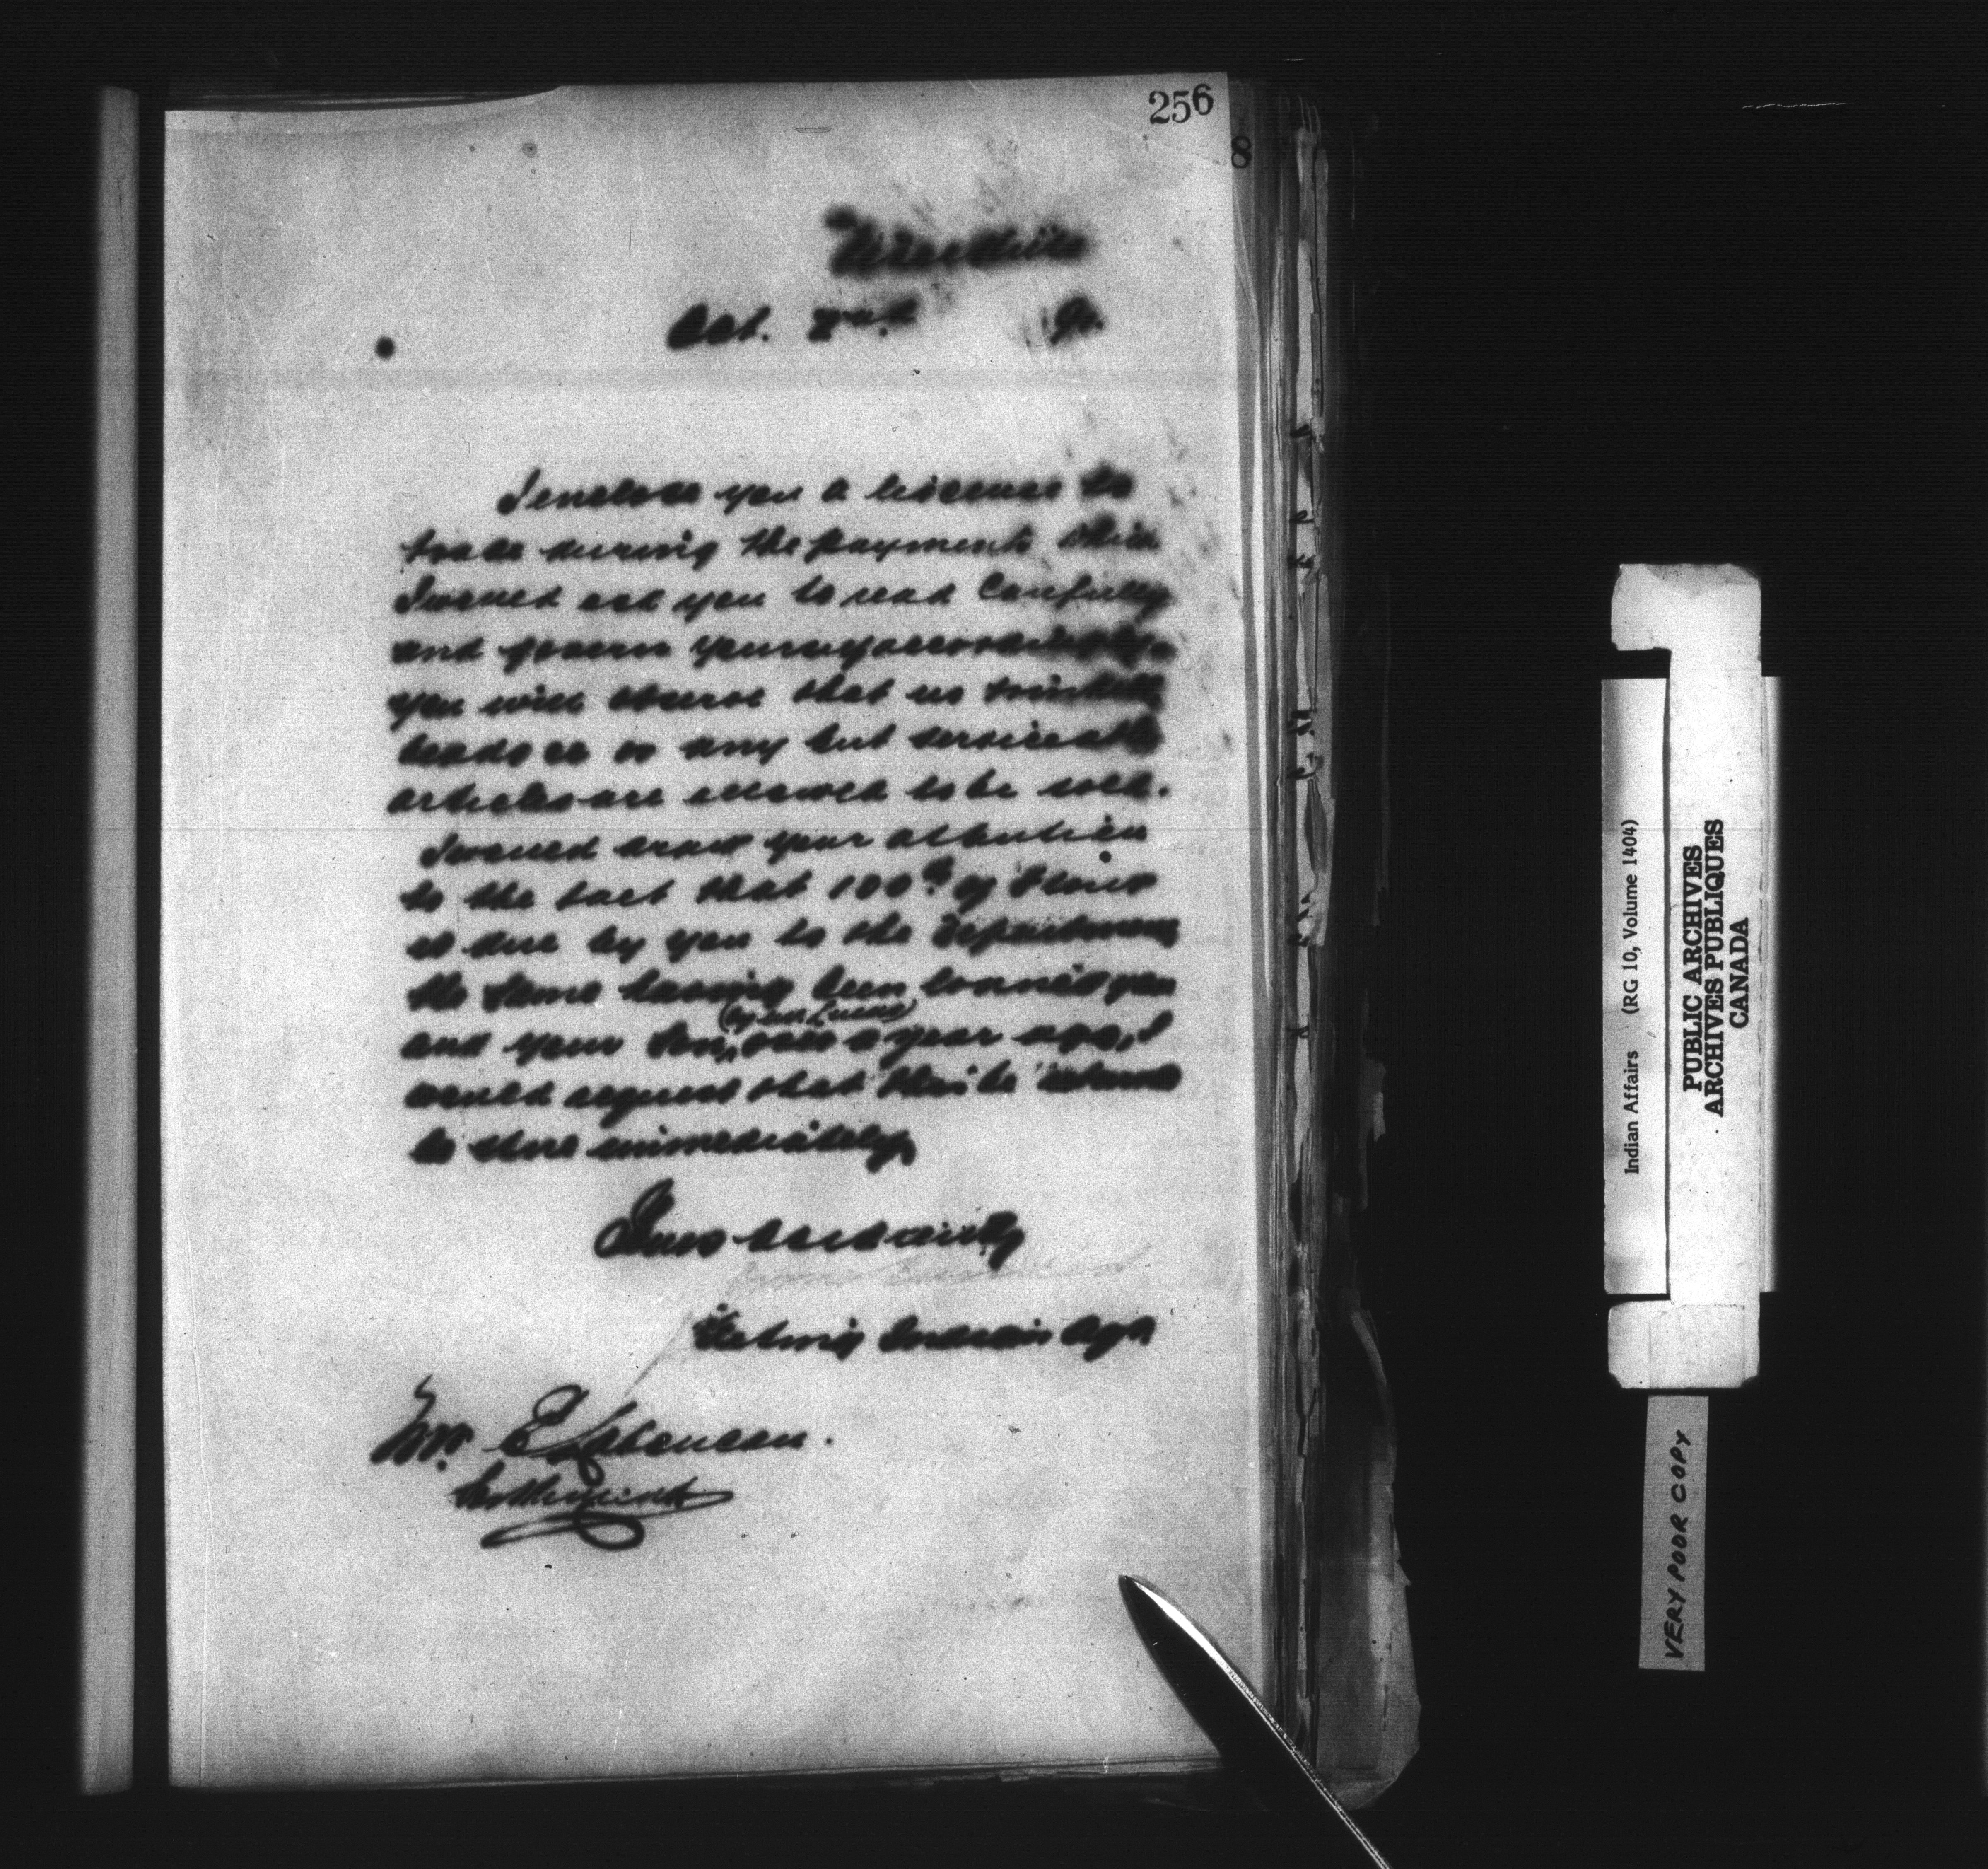 256
8
Oct. 2nd 90.
I enclose you a license to
trade during the payments which
I would ask you to read Carefully
and govern yourself accordingly.
you will observe that no trinkets
beads or any but serviceable
articles are allowed to be sold.
I would draw your attention
to the fact that 100 of flour
is due by you to the Department
the same having been loaned you
(by Mr Lucas)
and your Son, over a year ago, I
would request that this be returned
to store immediately
Yours
Acting Indian Agt
Mr. E
Indian Affairs (RG 10, Volume 1404)
PUBLIC ARCHIVES
ARCHIVES PUBLIQUES
CANADA
VERY POOR COPY